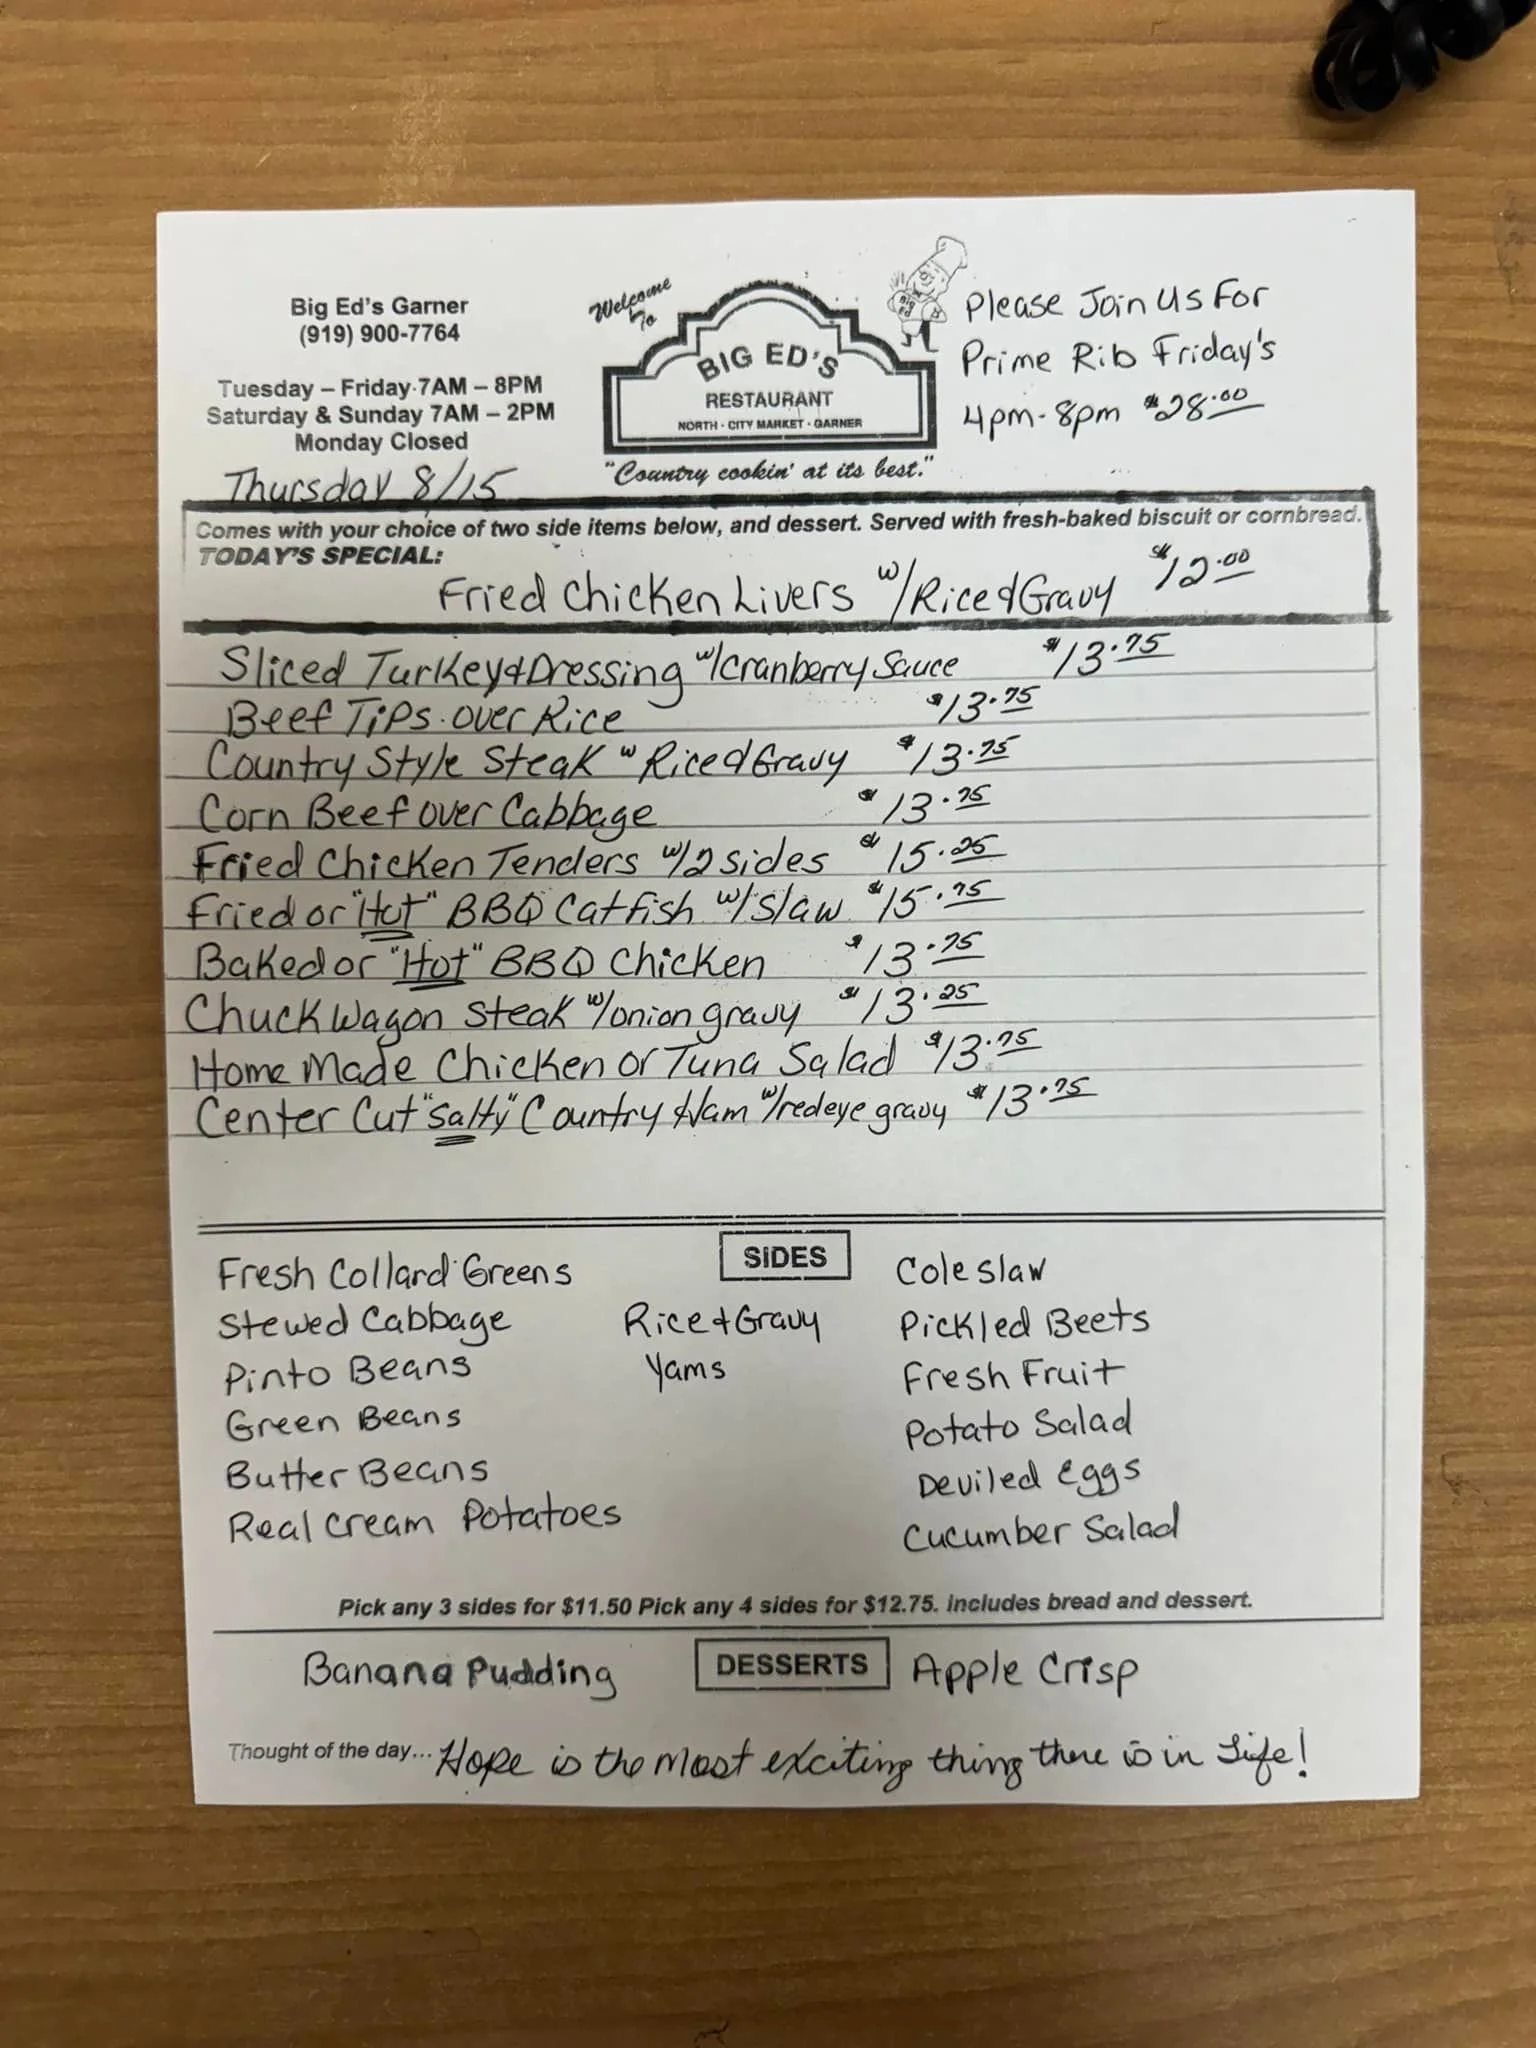 Big Ed's Garner
(919) 900-7764
Tuesday – Friday 7AM – 8PM
Saturday & Sunday 7AM – 2PM
Monday Closed
Thursday 8/15
Welcome
To
BIG ED'S
RESTAURANT
NORTH · CITY MARKET · GARNER
"Country cookin' at its best."
BIG
ED
Please Join Us For
Prime Rib Friday's
4pm-8pm $28.00
Comes with your choice of two side items below, and dessert. Served with fresh-baked biscuit or cornbread.
TODAY'S SPECIAL:
Fried Chicken Livers w/Rice & Gravy $12.00
Sliced Turkey & Dressing w/cranberry Sauce $13.75
Beef Tips over Rice $13.75
Country Style Steak w Rice & Gravy $13.75
Corn Beef over Cabbage $13.75
Fried Chicken Tenders w/2 sides $15.25
Fried or "Hot" BBQ Catfish w/slaw $15.75
Baked or "Hot" BBQ Chicken $13.75
Chuck Wagon Steak w/onion gravy $13.25
Home Made Chicken or Tuna Salad $13.75
Center Cut "Salty" Country Ham w/redeye gravy $13.75
SIDES
Fresh Collard Greens
Stewed Cabbage
Pinto Beans
Green Beans
Butter Beans
Real Cream Potatoes
Rice & Gravy
Yams
Coleslaw
Pickled Beets
Fresh Fruit
Potato Salad
Deviled Eggs
Cucumber Salad
Pick any 3 sides for $11.50 Pick any 4 sides for $12.75. Includes bread and dessert.
Banana Pudding DESSERTS Apple Crisp
Thought of the day... Hope is the most exciting thing there is in Life!